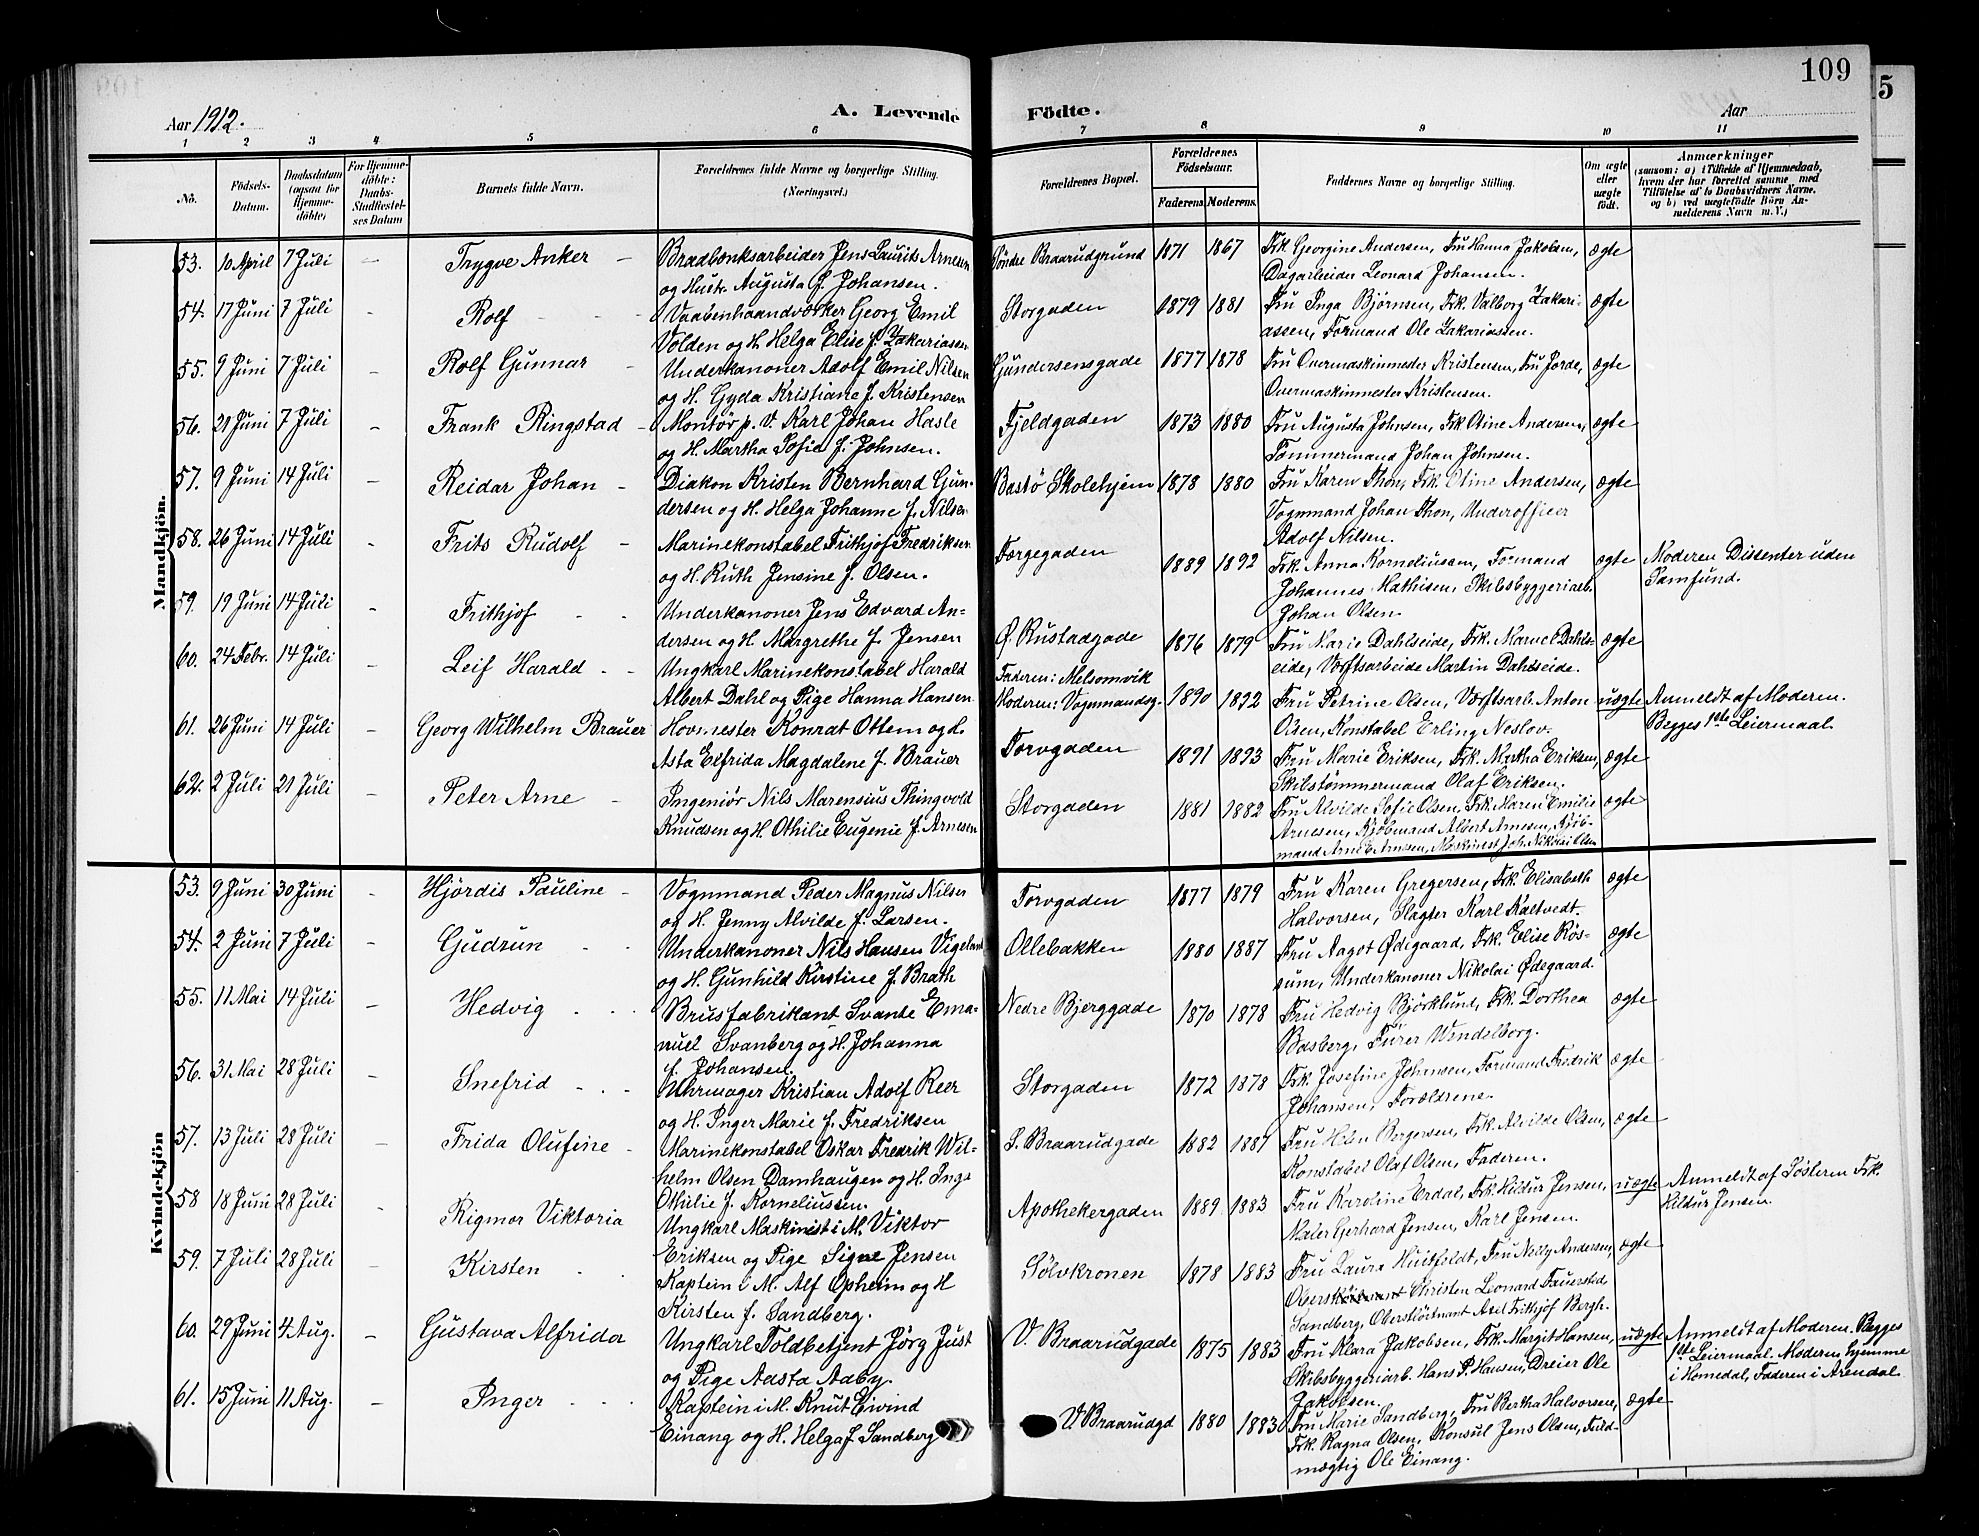 109
5
Aar 1912.
A. Levende Födte.
Aar
1 2 3 4 5 6 7 8 9 10 11
No.
Födsels-
Datum.
Daabsdatum
(ogsaa for
Hjemme-
döbte)
For Hjemme-
döbte:
Daabs-
Stadfæstel-
ses Datum
Barnets fulde Navn.
Forældrenes fulde Navne og borgerlige Stilling.
(Næringsvei.)
Forældrenes Bopæl.
Forældrenes
Födselsaar.
Faderens. Moderens.
Faddernes Navne og borgerlige Stilling.
Om ægte
eller
uægte
født.
Anmærkninger
(saasom: a) i Tilfælde af Hjemmedaab,
hvem der har forrettet samme med
Tilföielse af to Daabsvidners Navne,
og b) ved uægtefödte Börn An-
melderens Navn m. V.)
Mandkjön.
53. 10 April 7 Juli — Trygve Anker —
Bradbænksarbeider Jens Laurits Arnesen
og Hustr. Augusta f. Johansen.
Söndre Braarudgrund 1871 1867
Frk Georgine Andersen, Fru Hanna Jakobsen,
Dagarbeider Leonard Johansen.
ægte
54. 17 Juni 7 Juli - Rolf
Vaabenhaandværker Georg Emil
Volden og H. Helga Elise f. Zakariassen
Storgaden 1879 1881
Fru Inga Bjørnsen, Frk. Valborg Zakari-
assen, Formand Ole Zakariassen.
ægte
55. 9 Juni 7 Juli - Rolf Gunnar
Underkanoner Adolf Emil Nilsen
og H. Gyda Kristiane f. Kristensen
Gundersensgade 1877 1878
Fru Overmaskinmester Kristensen, Fru Jorde,
Overmaskinmester Kristensen.
ægte
56. 21 Juni 7 Juli - Frank Ringstad -
Montör p. V. Karl Johan Hasle
og H. Martha Sofie f. Johnsen.
Fjeldgaden 1873 1880
Fru Augusta Johnsen, Frk Otine Andersen,
Tømmermand Johan Johnsen.
ægte
57. 9 Juni 14 Juli - Reidar Johan -
Diakon Kristen Bernhard Gun-
dersen og H. Helga Johanne f. Nilsen
Bastö Skolehjem 1878 1880
Fru Karen Thon, Frk. Otine Andersen,
Vognmand Johan Thon, Underofficer
Adolf Nilsen.
ægte
58. 26 Juni 14 Juli - Frits Rudolf -
Marinekonstabel Frithjof Fredriksen
og H. Ruth Jensine f. Olsen.
Færgegaden 1889 1892
Frk. Anna Korneliussen, Formand
Johannes Mathisen, Skibsbyggeriarb.
Johan Olsen.
ægte
Moderen Dissenter uden
Samfund.
59. 19 Juni 14 Juli - Frithjof
Underkanoner Jens Edvard An-
dersen og H. Margrethe f. Jensen
Ø. Rustadgade 1876 1879
Fru Marie Dahlseide, Frk. Dahls-
eide, Værftsarbeide Martin Dahlseide.
ægte
60. 24 Febr. 14 Juli - Leif Harald
Ungkarl Marinekonstabel Harald
Albert Dahl og Pige Hanna Hansen
Faderen: Melsomvik
Moderen: Vognmandsg. 1890 1892
Fru Petrine Olsen, Værftsarb. Anton
Olsen, Konstabel Erling Neslov.
uægte
Anmeldt af Moderen.
Begges 1ste Leiermaal.
61. 26 Juni 14 Juli - Georg Wilhelm Brauer
Hovmester Konrat Ottem og H.
Asta Elfrida Magdalene f. Brauer
Torvgaden 1891 1893
Fru Marie Eriksen, Frk. Martha Eriksen,
Skibstømmermand Olaf Eriksen.
ægte
62. 2 Juli 21 Juli - Peter Arne -
Ingeniør Nils Marensius Thingvold
Knudsen og H Othilie Eugenie f. Arnesen
Storgaden 1881 1882
Fru Alvilde Sofie Olsen, Frk. Maren Emilie
Arnesen, Kjöbmand Albert Arnesen, Kjöb-
mand Arne E. Arnesen, Maskinist Joh. Nikolai Olsen
ægte
Kvindekjön
53. 9 Juni 30 Juni - Hjördis Pauline -
Vognmand Peder Magnus Nilsen
og H. Jenny Alvilde f. Larsen.
Torvgaden 1877 1879
Fru Karen Gregersen, Frk Elisabeth
Halvorsen, Slagter Karl Kaltvedt.
ægte
54. 2 Juni 7 Juli - Gudrun
Underkanoner Nils Hansen Vigeland
og H. Gunhild Kirstine f. Brath
Ollebakken 1880 1887
Fru Aagot Ødegaard, Frk. Elise Røs-
sum, Underkanoner Nikolai Ødegaard.
ægte
55. 11 Mai 14 Juli - Hedvig
Brusfabrikant Svante Ema-
nuel Svanberg og H. Johanna
f. Johansen.
Nedre Bjerggade 1870 1878
Fru Hedvig Björklund, Frk. Dorthea
Basberg, Fürer Wendelborg.
ægte
56. 31 Mai 28 Juli - Snefrid
Uhrmager Kristian Adolf Reer
og H. Inger Marie f. Fredriksen
Storgaden 1872 1878
Frk. Josefine Johansen, Formand Fredrik
Johansen, Forældrene.
ægte
57. 13 Juli 28 Juli - Frida Olufine -
Marinekonstabel Oskar Fredrik Wil-
helm Olsen Damhaugen og H. Inga
Othilie f. Korneliussen.
S. Braarudgade 1882 1881
Fru Helen Bergersen, Frk. Alvilde Olsen,
Konstabel Olaf Olsen, Faderen.
ægte
58 18 Juni 28 Juli - Rigmor Viktoria
Ungkarl Maskinist i M. Viktor
Eriksen og Pige Signe Jensen
Apothekergaden 1889 1883
Fru Karoline Erdal, Frk. Hildur Jensen,
Maler Gerhard Jensen, Karl Jensen.
uægte
Anmeldt af Søsteren Frk.
Hildur Jensen.
59. 7 Juli 28 Juli - Kirsten
Kaptein i M. Alf Opheim og H
Kirsten f. Sandberg.
Sölvkronen 1878 1883
Fru Laura Huitfeldt, Fru Nelly Andersen,
Oberst Christen Leonard Fauersted
Sandberg, Oberstlöitnant Axel Frithjof Bergh.
ægte
60. 29 Juni 4 Aug. - Gustava Alfrida
Ungkarl Toldbetjent Jörg Just
og Pige Aasta Aaby.
V. Braarudgade 1875 1883
Fru Klara Jakobsen, Frk. Margit Hansen,
Skibsbyggeriarb. Hans P. Hansen, Dreier Ole
Jakobsen.
uægte
Anmeldt af Moderen. Begges
1ste Leiermaal. Moderen hjemme
i Homedal, Faderen i Arendal.
61. 15 Juni 11 Aug. - Inger
Kaptein i M. Knut Eivind
Einang og H. Helga f. Sandberg
V Braarudgd 1880 1883
Fru Marie Sandberg, Fru Bertha Halvorsen,
Frk. Ragna Olsen, Konsul Jens Olsen, Fuld-
mægtig Ole Einang.
ægte